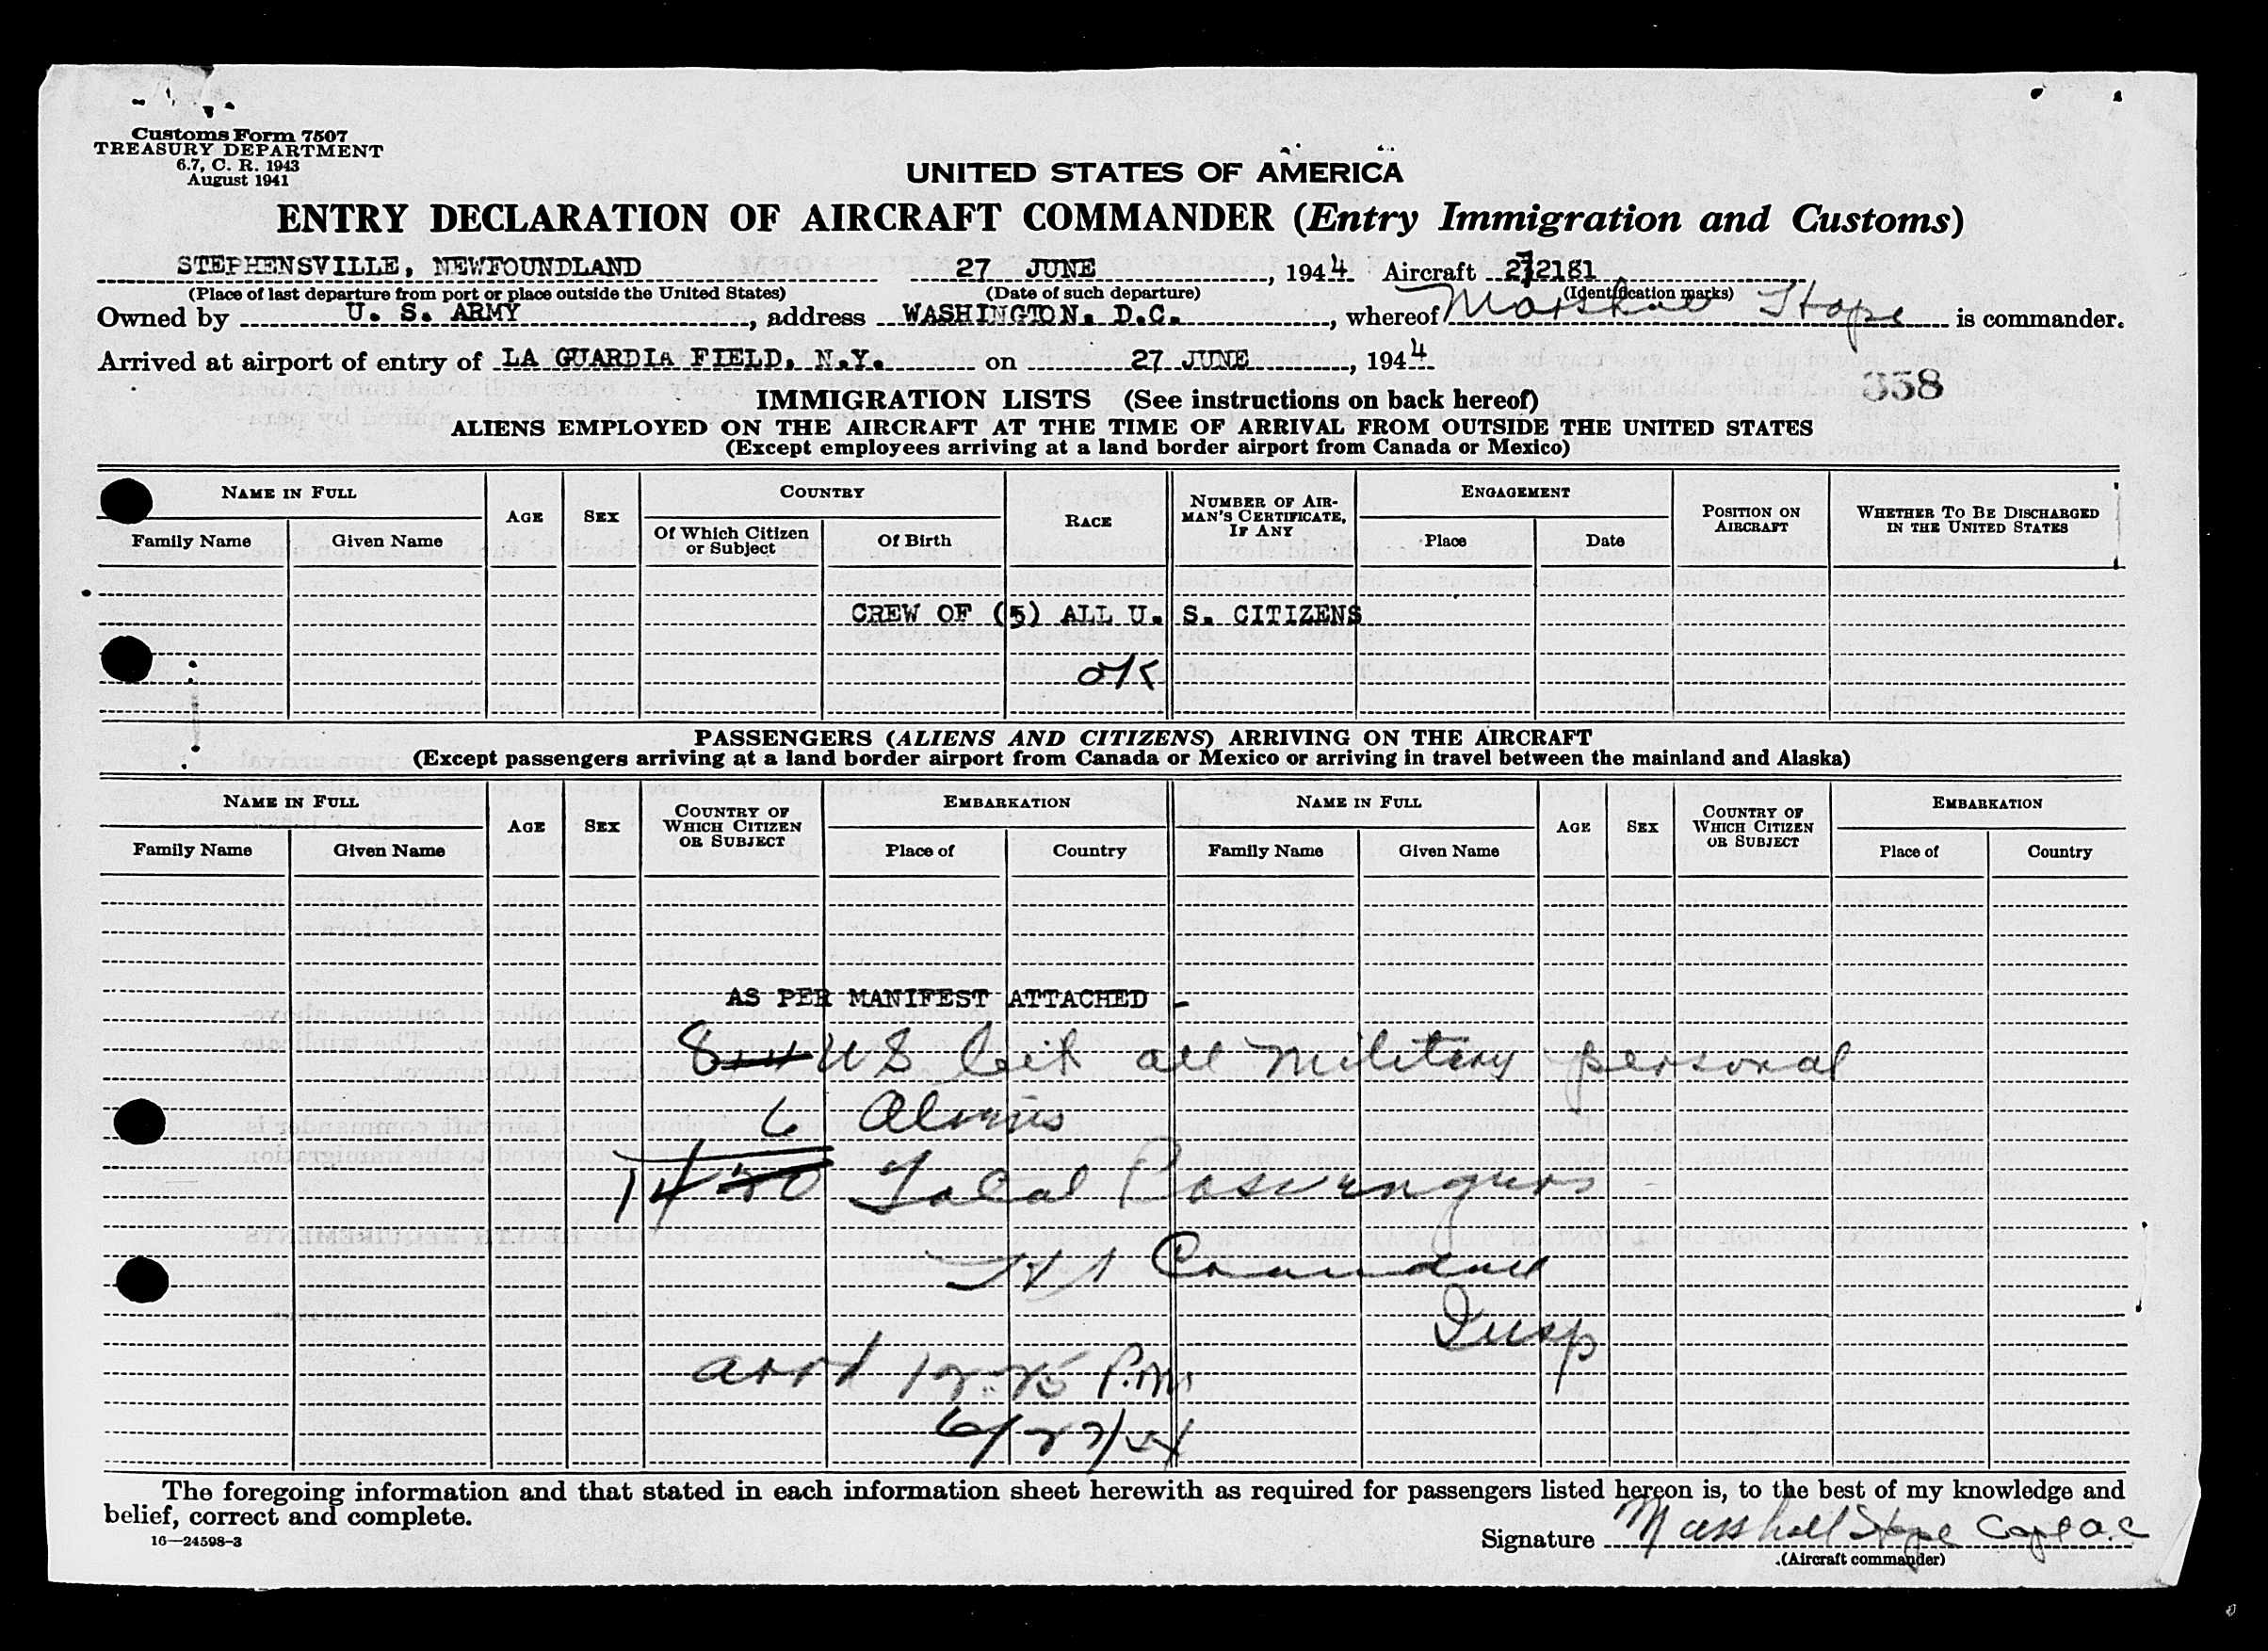 Customs Form 7507
TREASURY DEPARTMENT
6.7, C. R. 1943
August 1941
UNITED STATES OF AMERICA
ENTRY DECLARATION OF AIRCRAFT COMMANDER (Entry Immigration and Customs)
STEPHENSVILLE, NEWFOUNDLAND 27 JUNE, 1944 Aircraft 272181
(Place of last departure from port or place outside the United States) (Date of such departure) (Identification marks)
Owned by U. S. ARMY, address WASHINGTON, D.C., whereof Marshall is commander.
Arrived at airport of entry of LA GUARDIA FIELD, N.Y. on 27 JUNE, 1944
358
IMMIGRATION LISTS (See instructions on back hereof)
ALIENS EMPLOYED ON THE AIRCRAFT AT THE TIME OF ARRIVAL FROM OUTSIDE THE UNITED STATES
(Except employees arriving at a land border airport from Canada or Mexico)
NAME IN FULL AGE SEX COUNTRY RACE NUMBER OF AIRMAN'S CERTIFICATE, IF ANY ENGAGEMENT POSITION ON AIRCRAFT WHETHER TO BE DISCHARGED IN THE UNITED STATES
Family Name Given Name Of Which Citizen or Subject Of Birth Place Date
CREW OF (5) ALL U. S. CITIZENS
OK
PASSENGERS (ALIENS AND CITIZENS) ARRIVING ON THE AIRCRAFT
(Except passengers arriving at a land border airport from Canada or Mexico or arriving in travel between the mainland and Alaska)
NAME IN FULL AGE SEX COUNTRY OF WHICH CITIZEN OR SUBJECT EMBARKATION NAME IN FULL AGE SEX COUNTRY OF WHICH CITIZEN OR SUBJECT EMBARKATION
Family Name Given Name Place of Country Family Name Given Name Place of Country
AS PER MANIFEST ATTACHED -
8 US Cit all military personal
6 Aliens
14 20 Total Passengers
Insp
arrd 12:25 P.M.
6/27/44
The foregoing information and that stated in each information sheet herewith as required for passengers listed hereon is, to the best of my knowledge and
belief, correct and complete.
16—24598-3
Signature Marshall Capt A.C
(Aircraft commander)